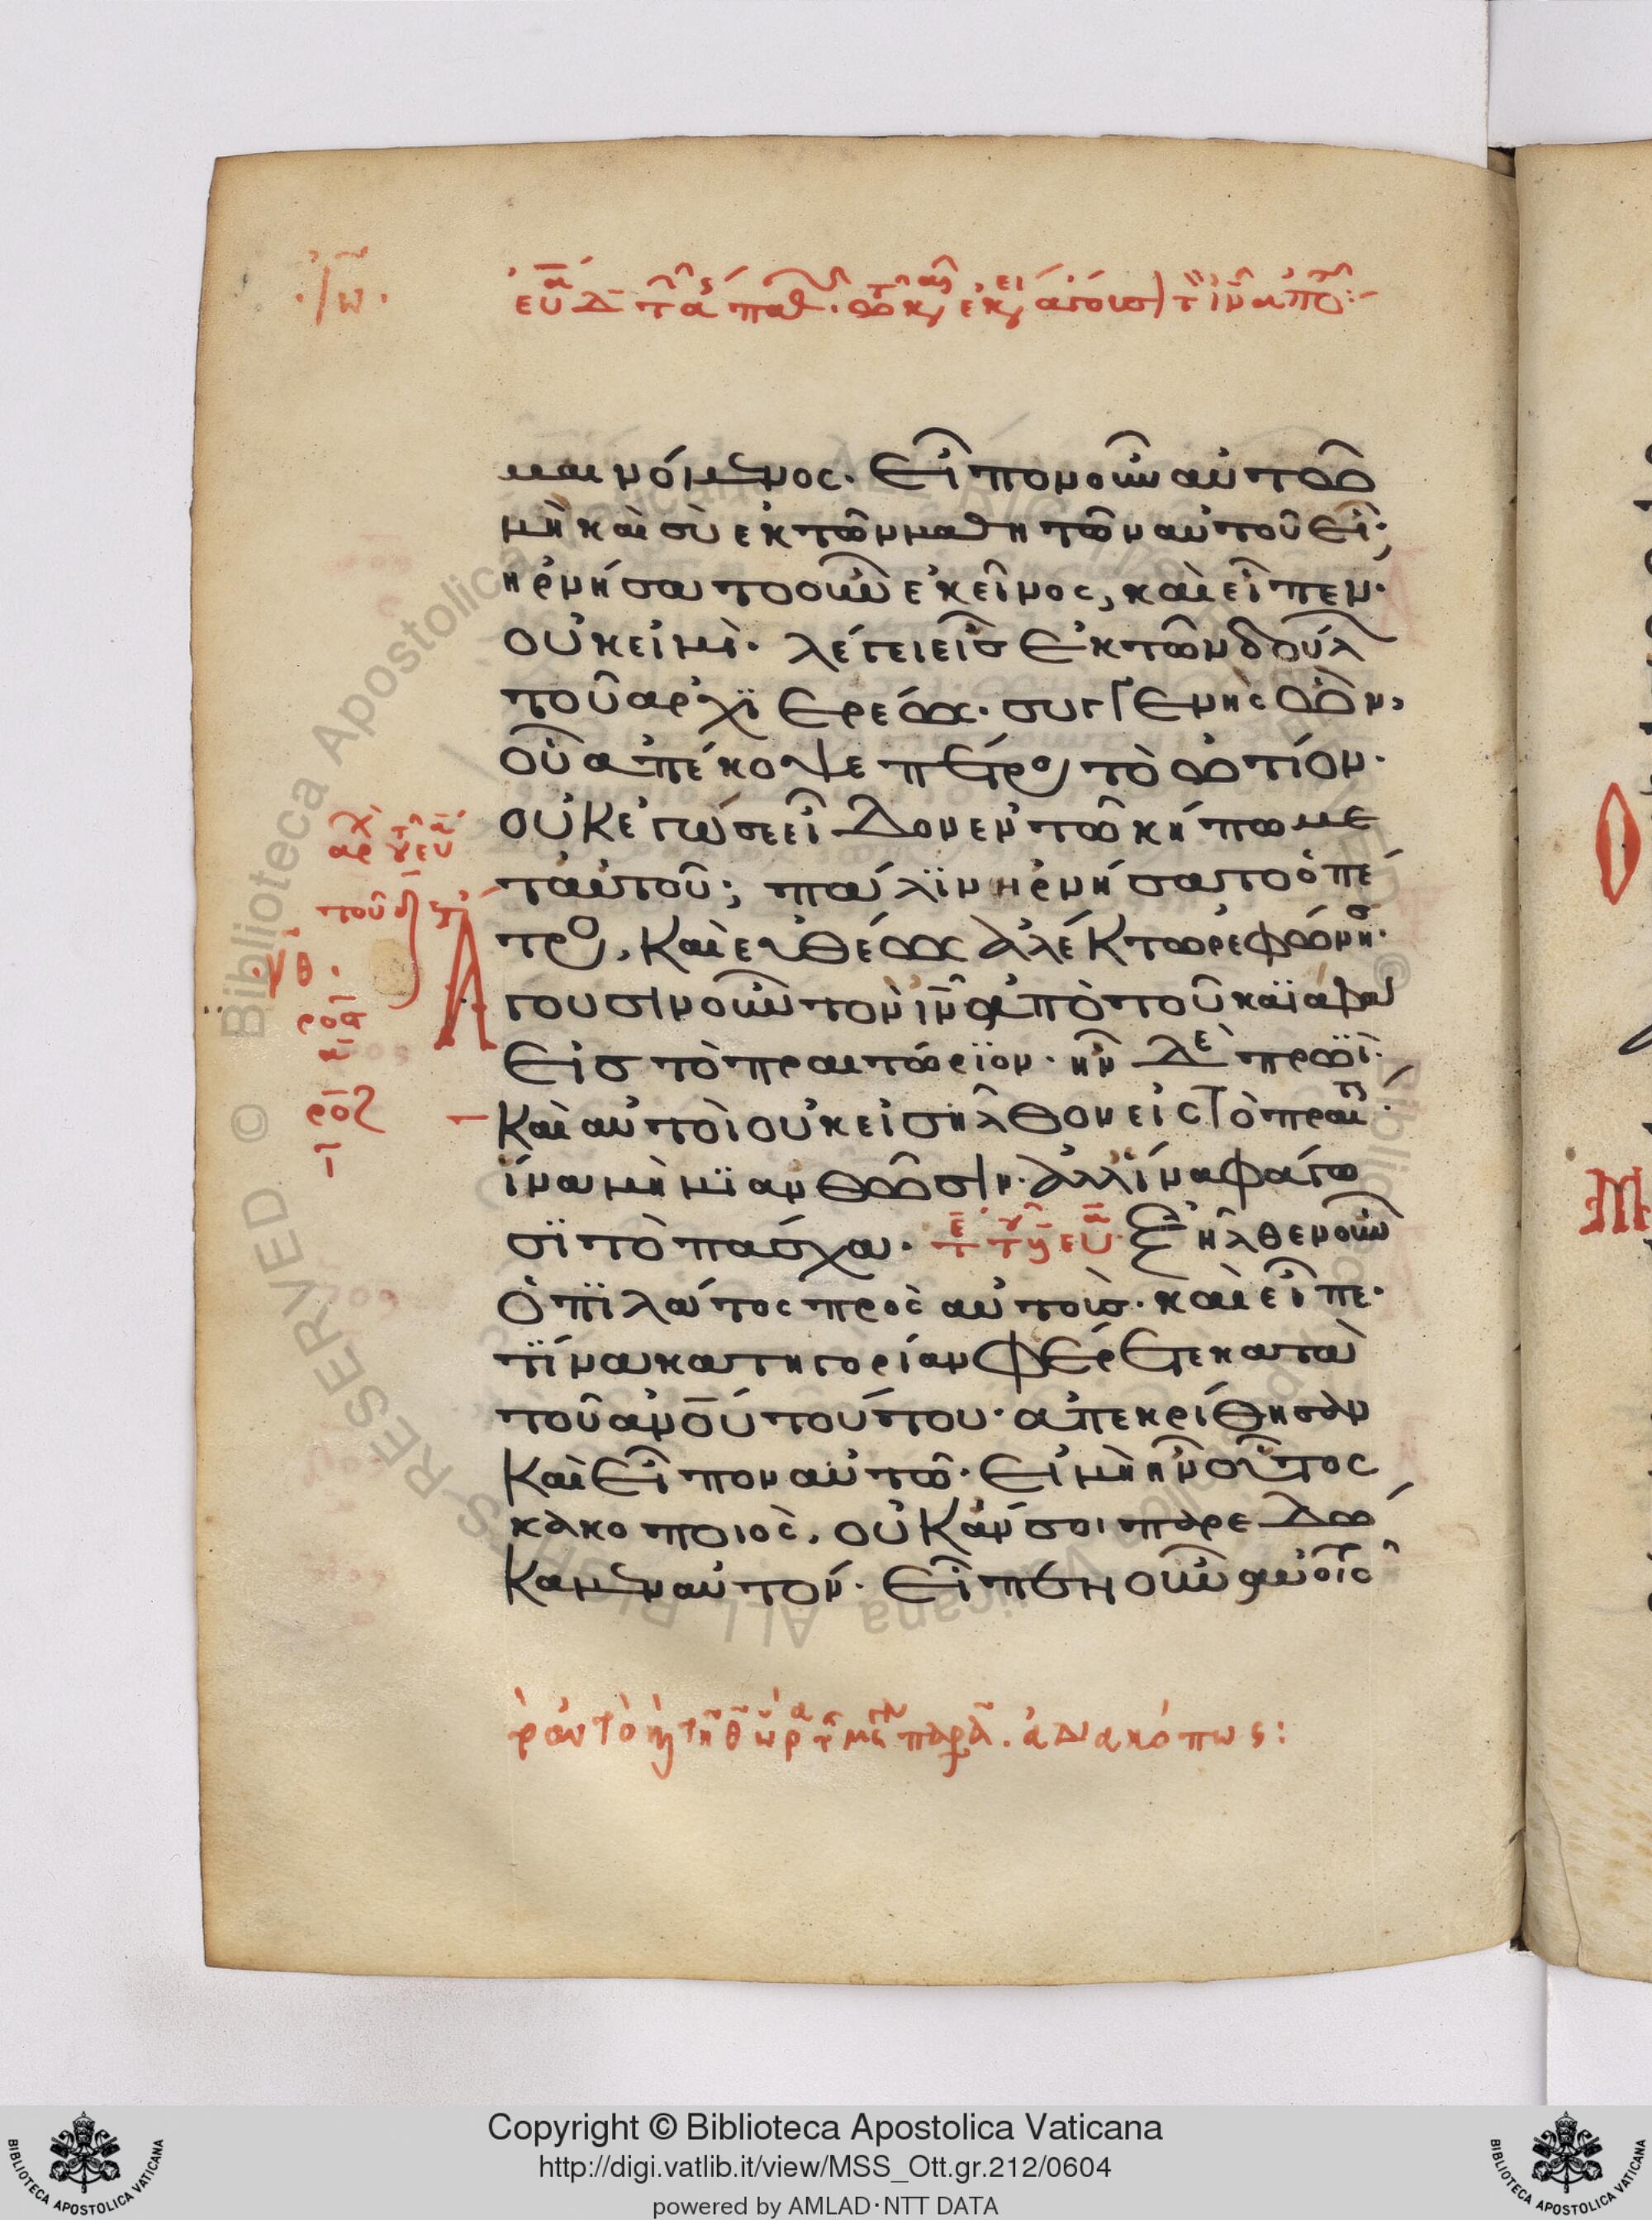 μαινόμενος. εἶπον οὖν αὐτῶ
μὴ καὶ σὺ ἐκ τῶν μαθητῶν αὐτοῦ εἶ;
ἠρνήσατο οὖν ἐκεῖνος, καὶ εἶπεν.
οὐκ εἰμὶ. λέγει εἷς ἐκ τῶν δούλ
τοῦ ἀρχϊερέως. συγγενὴς ὢν,
οὗ ἀπέκοψε πέτρος τὸ ὠτίον.
οὐκ ἐγώ σε εἶδον ἐν τῶ κήπω με
τ αὐτοῦ; πάλϊν ἠρνήσατο ὁ πέ
τρος, καὶ εὐθέως ἀλέκτωρ ἐφώνησ.
Ἄγουσιν οὖν τὸν ἰν ἀπὸ τοῦ καϊάφα
εἰς τὸ πραιτώρϊον. ἦν δὲ πρωΐ.
καὶ αὐτοὶ οὐκ εἰσῆλθον εἰς τὸ πραιτ.
ἵνα μὴ μϊανθῶσιν. ἀλλ' ἵνα φάγω
σϊ τὸ πάσχα. Ἐξῆλθεν οὖν
ὁ πϊλάτος πρὸς αὐτοὺς. καὶ εἶπε.
τΐνα κατηγορίαν φέρετε κατὰ
τοῦ ἀνου τούτου. ἀπεκρίθησαν
καὶ εἶπον αὐτῶ. εἰ μὴ ἦν οὗτος
κακοποιὸς, οὐκ ἄν σοι παρεδώ
καμεν αὐτόν. εἶπεν οὖν αὐτοῖς
ἀδιακόπως:
Biblioteca Apostolica Vaticana ALL RIGHTS RESERVED ©
Copyright © Biblioteca Apostolica Vaticana
http://digi.vatlib.it/view/MSS_Ott.gr.212/0604
powered by AMLAD·NTT DATA
BIBLIOTECA APOSTOLICA VATICANA
BIBLIOTECA APOSTOLICA VATICANA